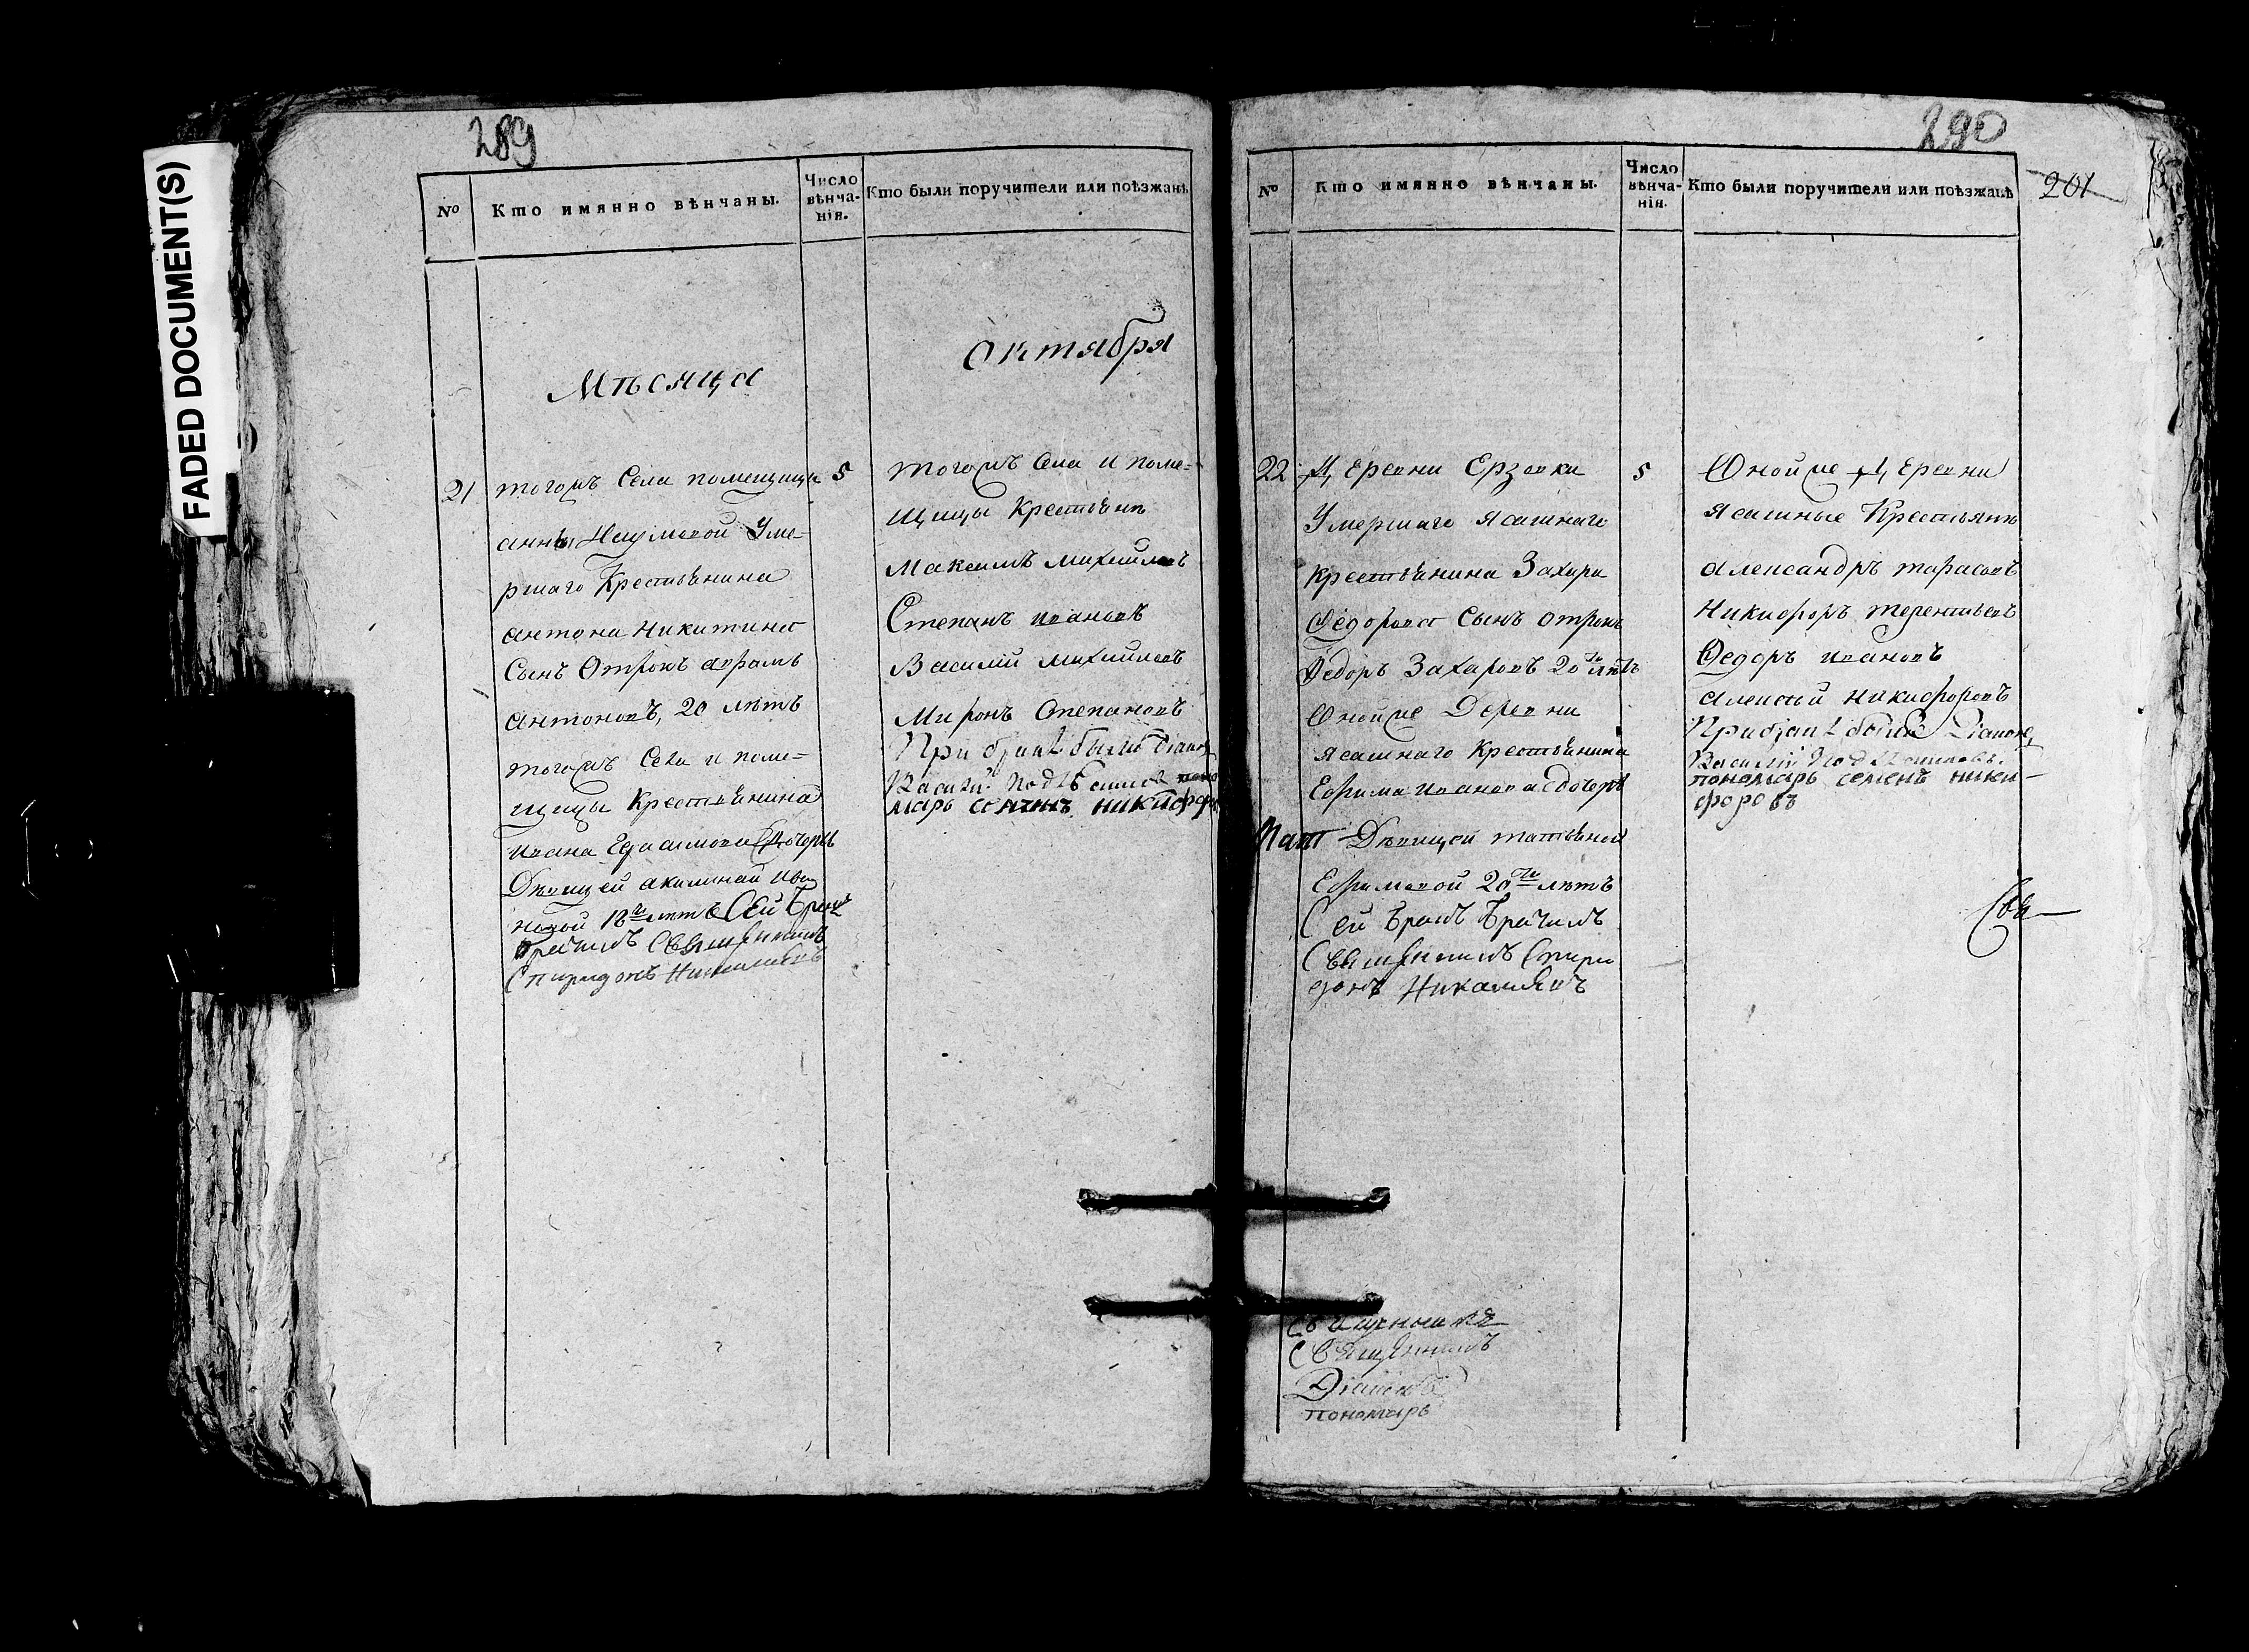 FADED DOCUMENT(S)
289
№ Кто имянно вѣнчаны. Число вѣнча-нія. Кто были поручители или поѣзжанѣ
Мѣсяца Октября
21 тогожъ Села помещицы 5
анны Наумовой Уме-
ршаго Крестьянина
антона Никитина
Сынъ Отрокъ аврамъ
антоновъ, 20 лѣтъ
тогожъ Села и поме-
щицы Крестьянина
ивана Герасимова дочерь
Дѣвицей акилиной ива
новой 18ти лѣтъ Сей Бракъ
Брачилъ Священникъ
Спиридонъ Николаевъ
тогожъ Села и поме-
щицы Крестьянѣ
Максимъ михайловъ
Степанъ ивановъ
Василий михайловъ
Миронъ Степановъ
При бракѣ были Диаконъ
Василий
марь семенъ никифоровъ
290
201
№ Кто имянно вѣнчаны. Число вѣнча-нія. Кто были поручители или поѣзжанѣ
22 Деревни Ерзовки 5
Умершаго Ясашнаго
крестьянина Захара
Федорова Сынъ отрокъ
Федоръ Захаровъ 20ти лѣтъ
Оной же Деревни
ясашнаго Крестьянина
Ефима иванова дочерь
Дѣвицей татьяной
Ефимовой 20ти лѣтъ
Сей Бракъ Брачилъ
Священникъ Спири
донъ Николаевъ
Оной же Деревни
Ясашные Крестьянѣ
александръ тарасовъ
Никифоръ терентьевъ
Федоръ ивановъ
алексѣй никифоровъ
При бракѣ были Диаконъ
Василий
пономарь семенъ ники-
форовъ
Свя
Священникъ
Священникъ
Диаконъ
пономарь